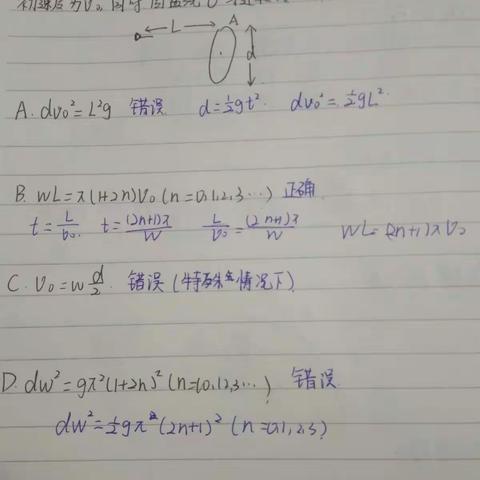 初速度为V₀,同时圆盘绕
L A d
A. dv₀²=L²g 错误 d=½gt² dv₀²=½gL²
B. wL=π(1+2n)V₀(n=0,1,2,3…) 正确
t=L/v₀ t=(2n+1)π/w L/v₀=(2n+1)π/w wL=(2n+1)πV₀
C. V₀=w d/2 错误(特殊情况下)
D. dw²=gπ²(1+2n)²(n=0,1,2,3…) 错误
dw²=½gπ²(2n+1)²(n=0,1,2,3)